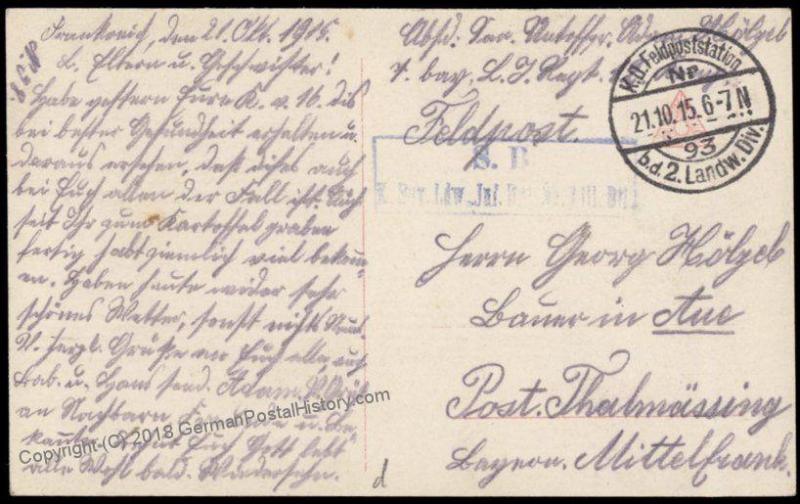 Frankreich, den 21. Okt. 1915.
L. Eltern u. Geschwister!
Habe gestern Eure K. v. 16. ds
bei bester Gesundheit erhalten u.
daraus ersehen, daß dises auch
bei Euch allen der Fall ist. Auch
seit Ihr zum Kartoffel graben
fertig habt ziemlich viel bekom-
en. Haben heute wider sehr
schönes Wetter, sonst nichts Neues
V. herzl. Grüße an Euch alle, auch
Bab. u. Hans send. Adam.
an Nachbarn u. Be-
kannte. Euch Gott lebt
alle Wohl bald. Widersehn.
Absd. Adam Hölzel
7. bay. L. J. Regt.
Feldpost.
K.D. Feldpoststation
Nr.
21.10.15. 6-7 N
93
b.d. 2. Landw. Div.
S. B
K. Bay. Ldw. Inf.
Herrn Georg Hölzel
Bauer in Aue
Post. Thalmässing
Bayern. Mittelfrank.
d
Copyright (C) 2018 GermanPostalHistory.com